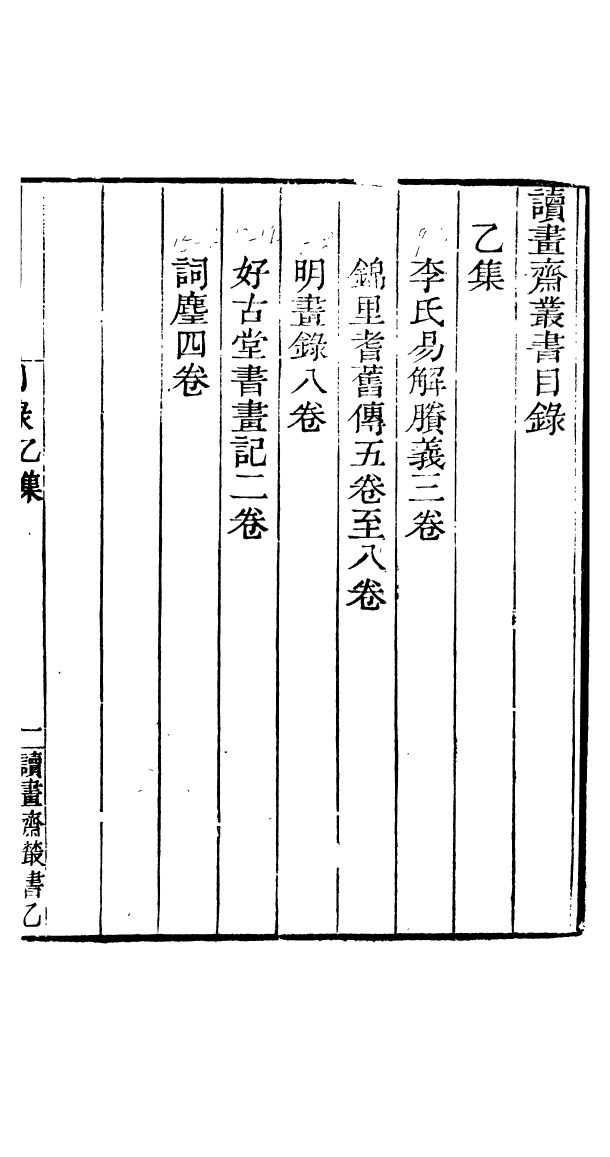 讀畫齋叢書目錄
乙集
李氏易解賸義三卷
錦里耆舊傳五卷至八卷
明畫錄八卷
好古堂書畫記二卷
詞麈四卷
目錄乙集
二
讀畫齋叢書乙